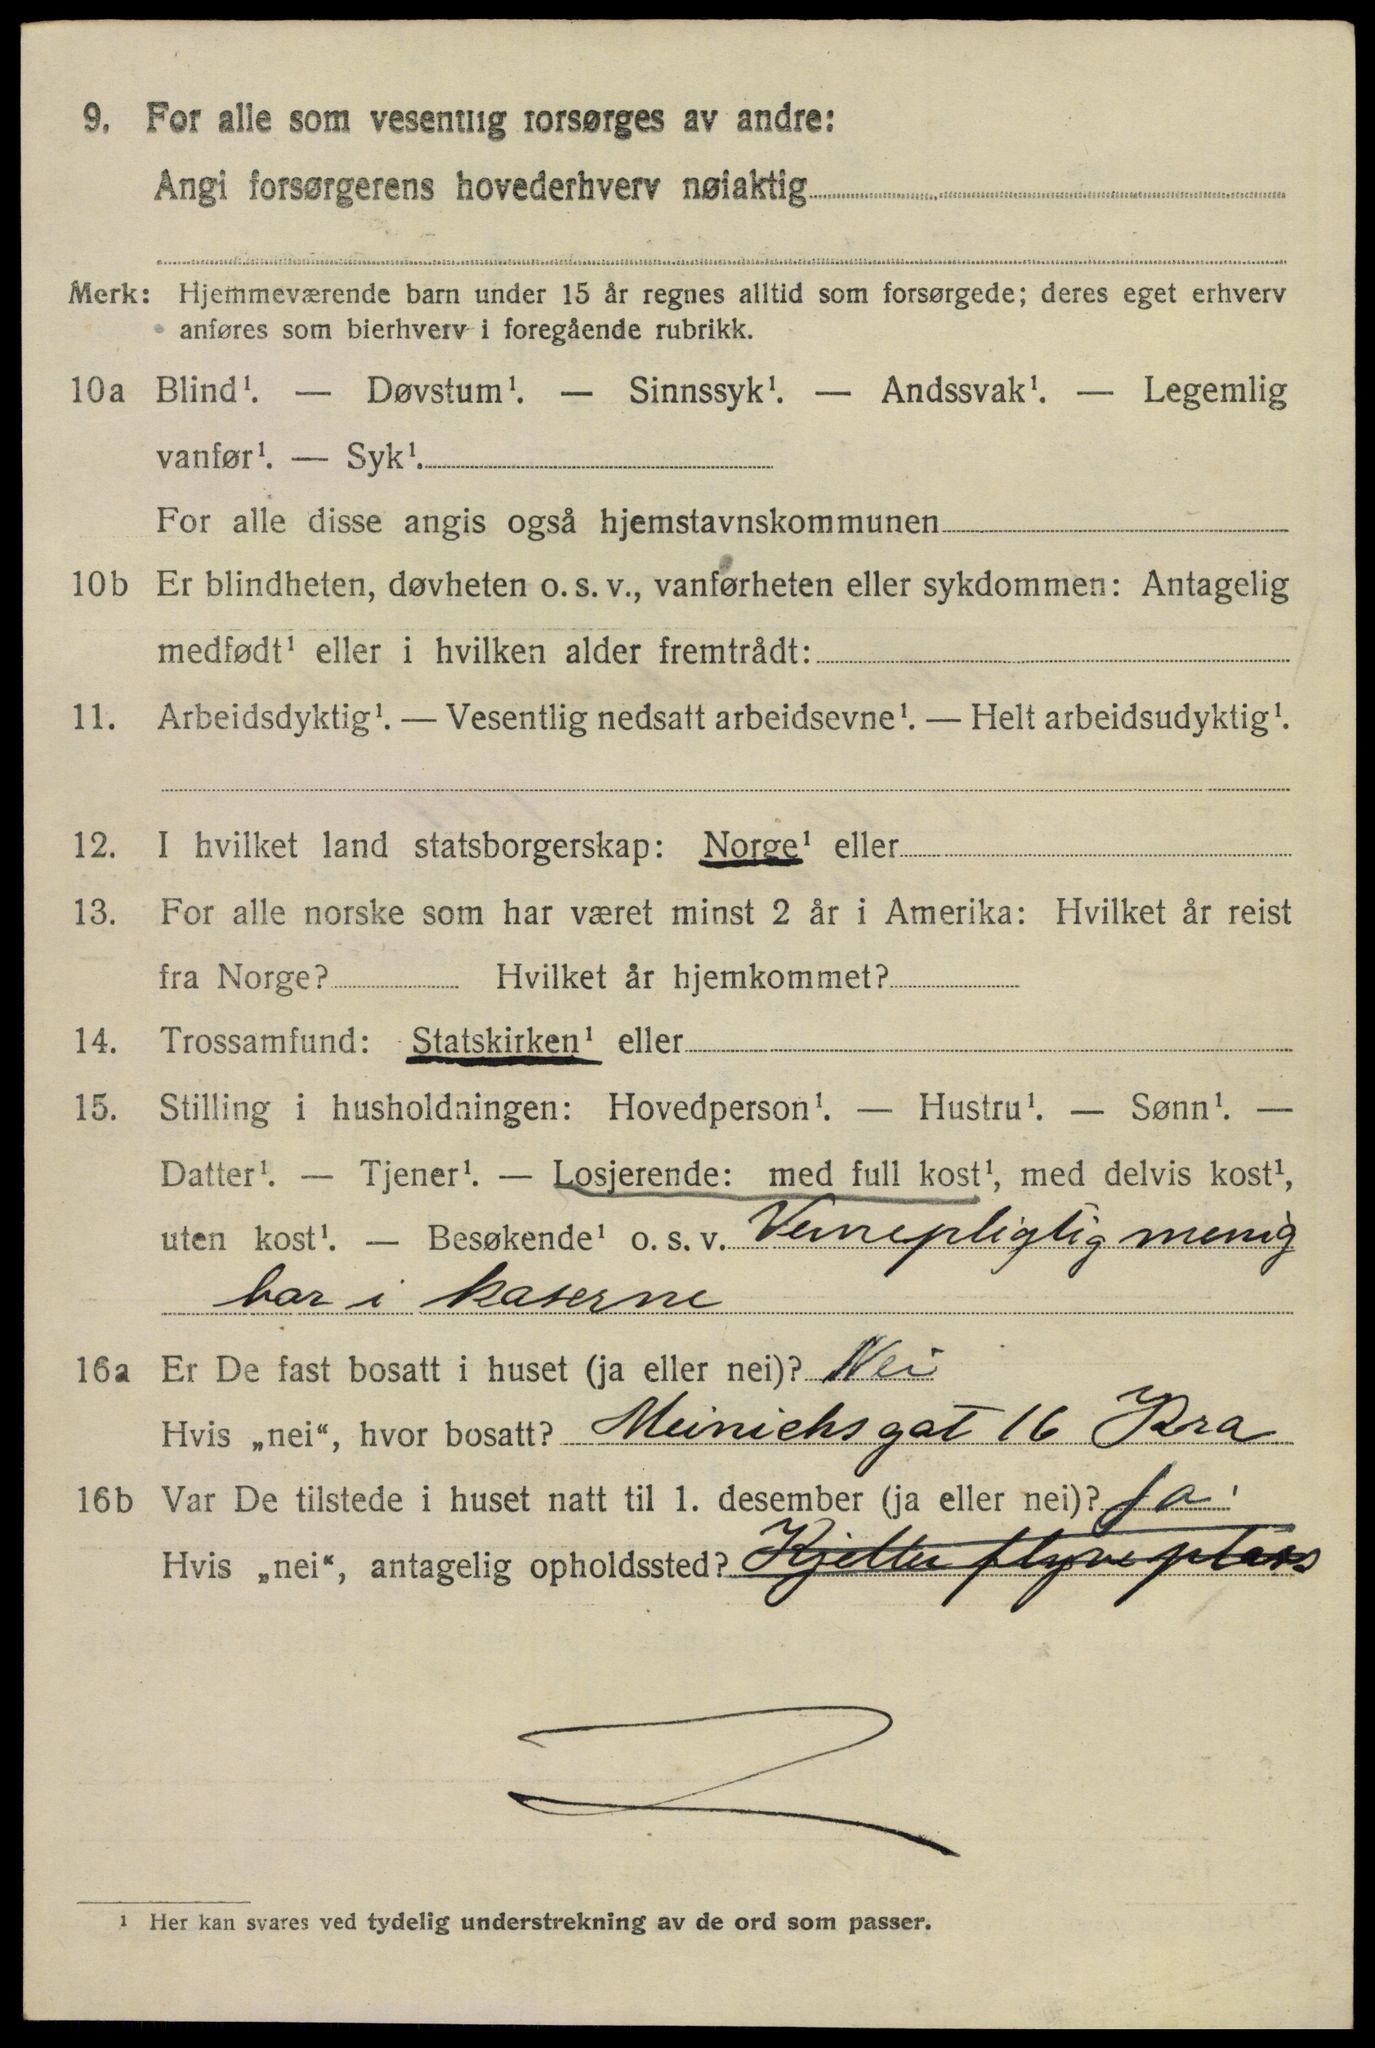 9. For alle som vesentlig forsørges av andre:
Angi forsørgerens hovederhverv nøiaktig
Merk: Hjemmeværende barn under 15 år regnes alltid som forsørgede; deres eget erhverv
anføres som bierhverv i foregående rubrikk.
10a Blind¹. — Døvstum¹. — Sinnssyk¹. — Andssvak¹. — Legemlig
vanfør¹. — Syk¹.
For alle disse angis også hjemstavnskommunen
10b Er blindheten, døvheten o. s. v., vanførheten eller sykdommen: Antagelig
medfødt¹ eller i hvilken alder fremtrådt:
11. Arbeidsdyktig¹. — Vesentlig nedsatt arbeidsevne¹. — Helt arbeidsudyktig¹.
12. I hvilket land statsborgerskap: Norge¹ eller
13. For alle norske som har været minst 2 år i Amerika: Hvilket år reist
fra Norge? Hvilket år hjemkommet?
14. Trossamfund: Statskirken¹ eller
15. Stilling i husholdningen: Hovedperson¹. — Hustru¹. — Sønn¹. —
Datter¹. — Tjener¹. — Losjerende: med full kost¹, med delvis kost¹,
uten kost¹. — Besøkende¹ o. s. v. Vernepligtig menig
bor i kaserne
16a Er De fast bosatt i huset (ja eller nei)? Nei
Hvis „nei“, hvor bosatt? Meinichsgat 16 Kra
16b Var De tilstede i huset natt til 1. desember (ja eller nei)? Ja
Hvis „nei“, antagelig opholdssted? Kjeller flyveplass
¹ Her kan svares ved tydelig understrekning av de ord som passer.